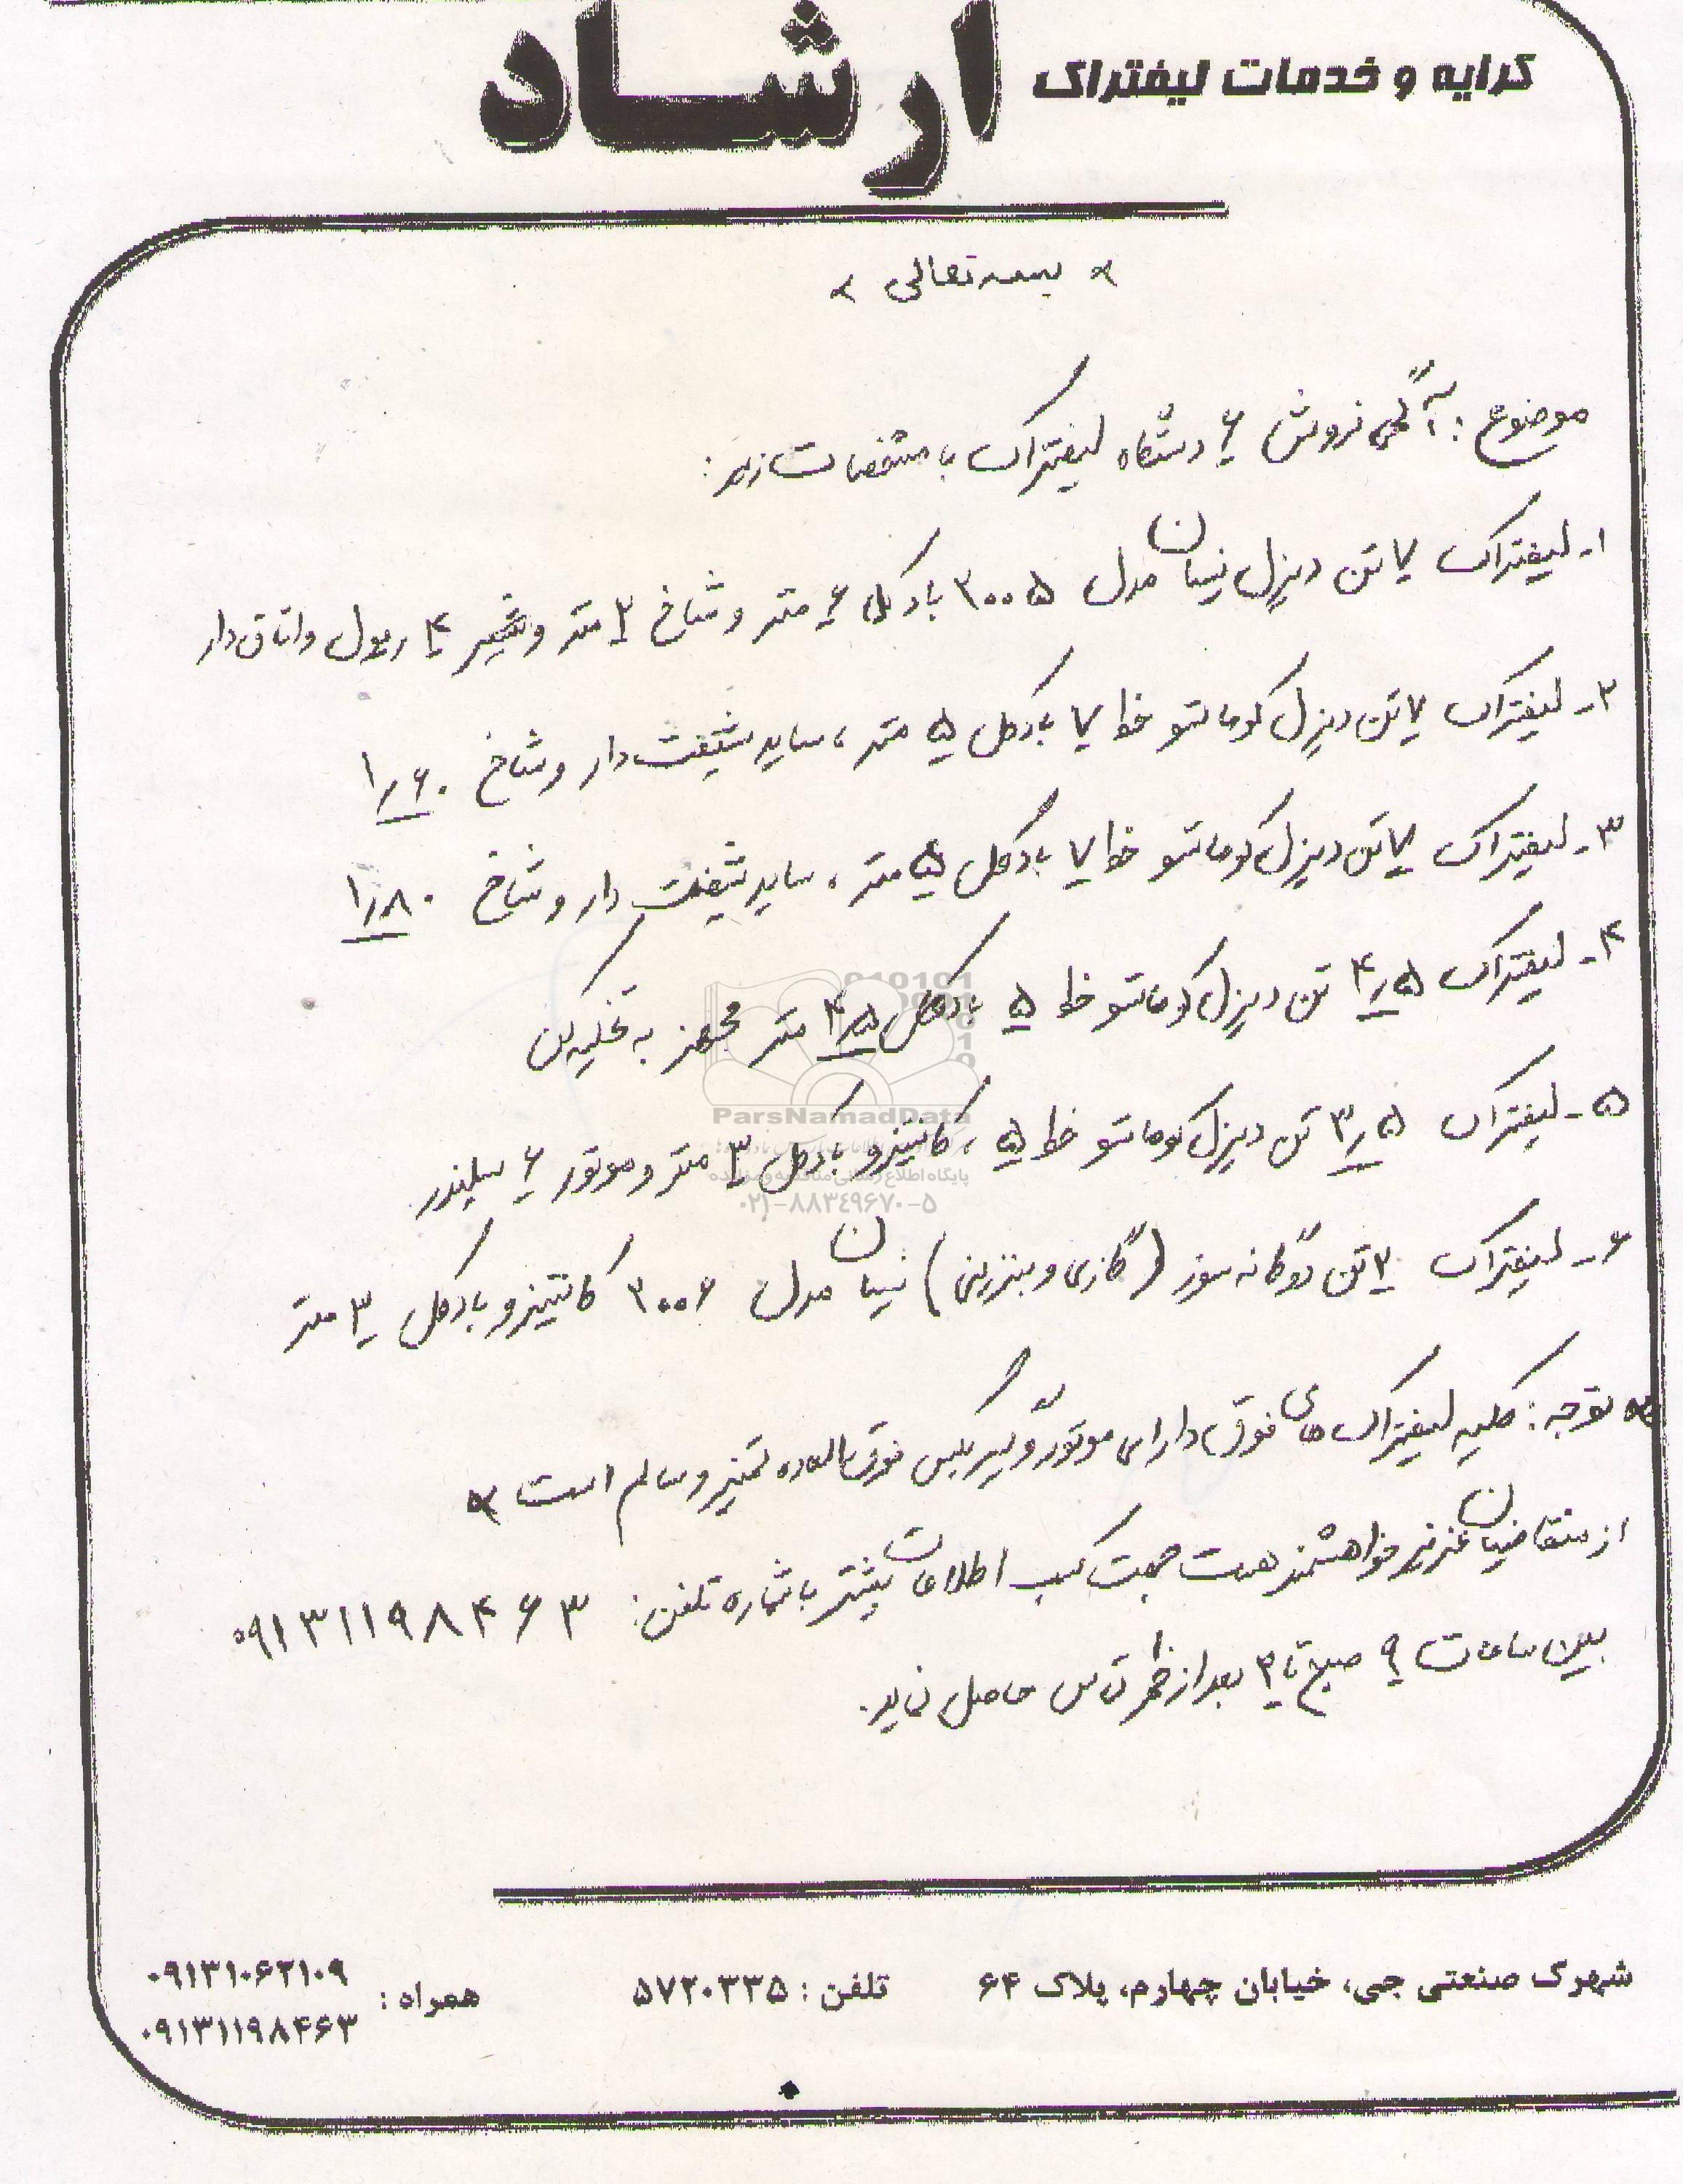 کرایه و خدمات لیفتراک ارشاد
« بسمه تعالی »
موضوع : آگهی فروش ۶ دستگاه لیفتراک با مشخصات زیر :
۱- لیفتراک ۷ تن دیزل نیسان مدل ۲۰۰۵ با دکل ۶ متر و شاخ ۲ متر و شیر ۴ ریول و اتاق دار
۲- لیفتراک ۷ تن دیزل کوماتسو خط ۷ با دکل ۵ متر ، ساید شیفت دار و شاخ ۱٫۶۰
۳- لیفتراک ۷ تن دیزل کوماتسو خط ۷ با دکل ۵ متر ، ساید شیفت دار و شاخ ۱٫۸۰
۴- لیفتراک ۴٫۵ تن دیزل کوماتسو خط ۵ با دکل ۴٫۵ متر مجهز به تخلیه کن
۵- لیفتراک ۳٫۵ تن دیزل کوماتسو خط ۵ ، کانتینرو با دکل ۳ متر و موتور ۶ سیلندر.
۶- لیفتراک ۳ تن دوگانه سوز (گازی و بنزینی) نیسان مدل ۲۰۰۶ کانتینرو با دکل ۳ متر
* توجه : کلیه لیفتراک های فوق دارای موتور و گیربکس فوق العاده تمیز و سالم است *
از متقاضیان عزیز خواهشمند هست جهت کسب اطلاعات بیشتر با شماره تلفن : ۰۹۱۳۱۱۹۸۴۶۳
بین ساعات ۹ صبح تا ۲ بعد از ظهر تماس حاصل نماید.
ParsNamadData
پایگاه اطلاع رسانی مناقصه و مزایده
۰۲۱-۸۸۳۴۹۶۷۰-۵
شهرک صنعتی جی، خیابان چهارم، پلاک ۶۴ تلفن : ۵۷۲۰۳۳۵ همراه : ۰۹۱۳۱۰۶۲۱۰۹
۰۹۱۳۱۱۹۸۴۶۳